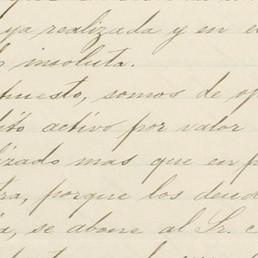 ya realizada y en e
insoluta.
puesto, somos de op
dito activo por valor
lizado mas que en p
tra, porque los deud
a, se abone al Sr. C